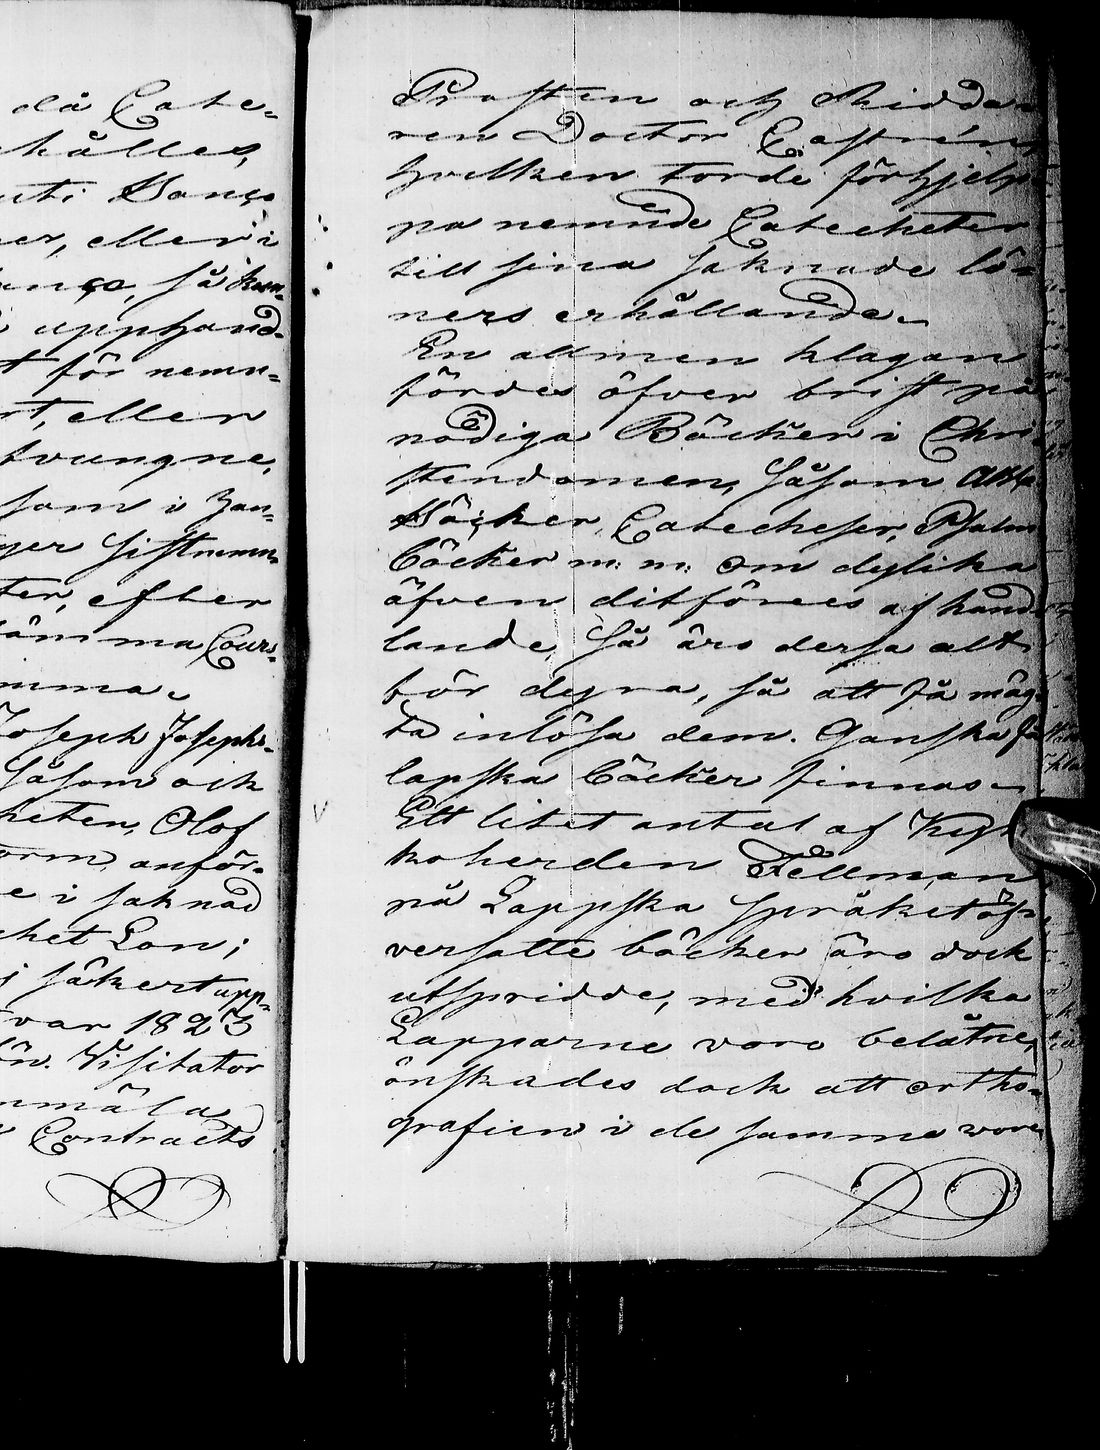 då Cate-
hålles,
uti Banço
er, eller i
anço, så kun-
upphand-
t för nemn-
rt, eller
tvungne,
som i han-
ger sistnemn-
ter, efter
ämma Cours-
imma.
Joseph Josephs-
såsom ock
heten, Olof
orm, anför-
e i saknad
ket Lön;
j säkert upp-
var 1823
ön. Visitator
nmäla
Contracts
Prosten och Ridda-
ren Doctor Castrén,
hvilken torde förhjelp-
pa nemnde Catecheter
till sina saknade lö-
ners erhållande.
En allmen klagan
fördes öfver brist på
nödiga Böcker i Chri-
stendomen, såsom Abba
Böcker, Catecheser, Psalm
böcker m: m: om dylika
äfven ditföres af hand-
lande, så äro dessa allt
för dyra, så att få mäg-
ta inlösa dem. Ganska få
lapska böcker finnas.
Ett litet antal af Kyr-
koherden Fellman
på Lappska språket öf-
versatte böcker äro dock
utspridde, med hvilka
Lapparne voro belåtne,
önskades dock att ortho-
grafien i de samma vore